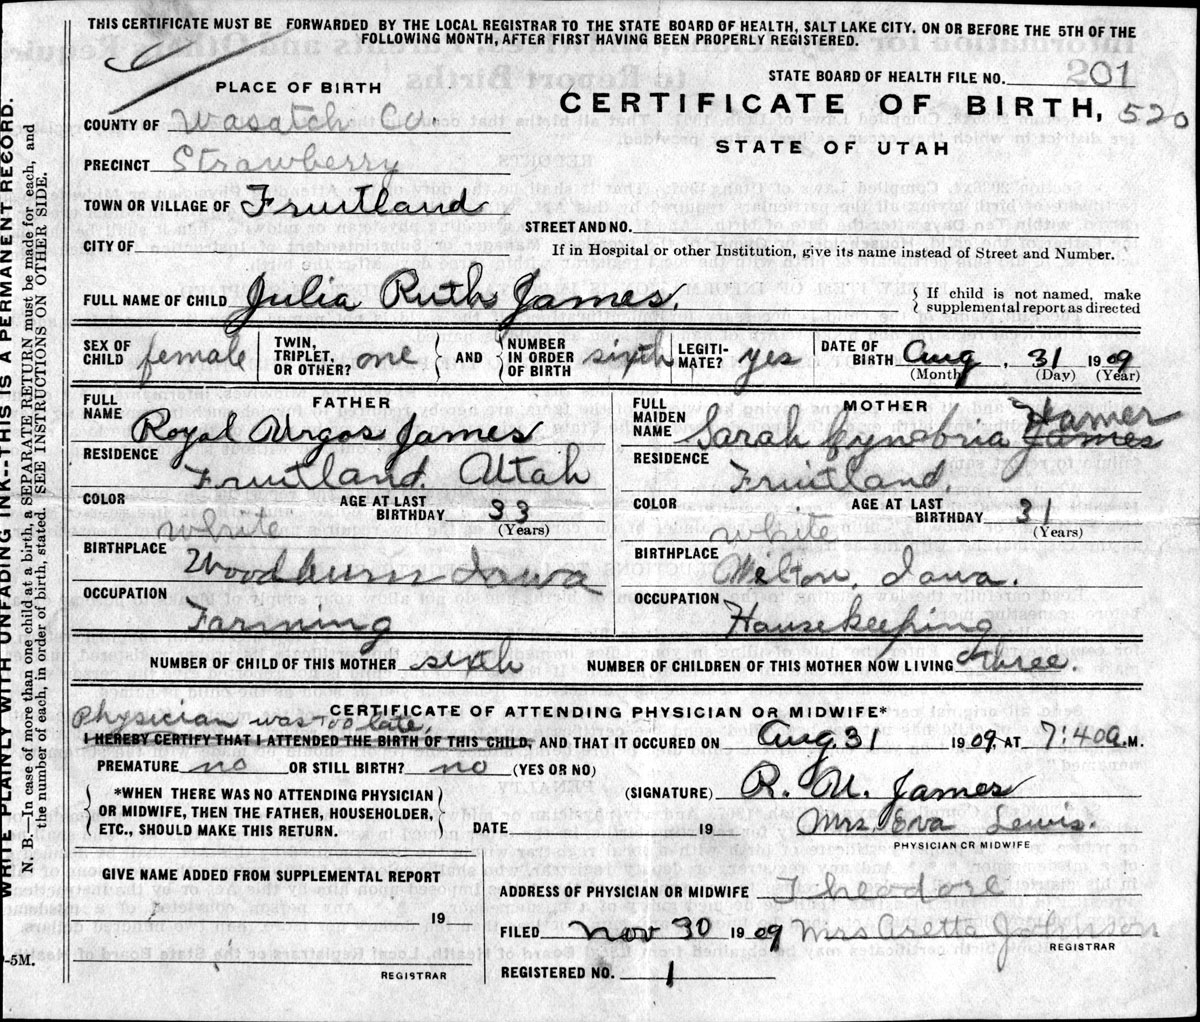 THIS CERTIFICATE MUST BE FORWARDED BY THE LOCAL REGISTRAR TO THE STATE BOARD OF HEALTH, SALT LAKE CITY, ON OR BEFORE THE 5TH OF THE
FOLLOWING MONTH, AFTER FIRST HAVING BEEN PROPERLY REGISTERED.
STATE BOARD OF HEALTH FILE NO. 201
PLACE OF BIRTH
CERTIFICATE OF BIRTH, 520
STATE OF UTAH
COUNTY OF Wasatch Co
PRECINCT Strawberry
TOWN OR VILLAGE OF Fruitland
STREET AND NO.
CITY OF
If in Hospital or other Institution, give its name instead of Street and Number.
FULL NAME OF CHILD Julia Ruth James.
If child is not named, make
supplemental report as directed
SEX OF CHILD female TWIN, TRIPLET, OR OTHER? one AND NUMBER IN ORDER OF BIRTH sixth LEGITIMATE? yes DATE OF BIRTH Aug, 31 1909
(Month) (Day) (Year)
FATHER
FULL NAME Royal Urgos James
RESIDENCE Fruitland. Utah
COLOR white AGE AT LAST BIRTHDAY 33 (Years)
BIRTHPLACE Woodburn Iowa
OCCUPATION Farming
MOTHER
FULL MAIDEN NAME Sarah Cynebria James Hamer
RESIDENCE Fruitland.
COLOR white AGE AT LAST BIRTHDAY 31 (Years)
BIRTHPLACE Welton, Iowa.
OCCUPATION Housekeeping
NUMBER OF CHILD OF THIS MOTHER sixth NUMBER OF CHILDREN OF THIS MOTHER NOW LIVING three.
CERTIFICATE OF ATTENDING PHYSICIAN OR MIDWIFE*
Physician was too late,
I HEREBY CERTIFY THAT I ATTENDED THE BIRTH OF THIS CHILD, AND THAT IT OCCURED ON Aug. 31 1909. AT 7:40a.M.
PREMATURE no OR STILL BIRTH? no (YES OR NO)
*WHEN THERE WAS NO ATTENDING PHYSICIAN
OR MIDWIFE, THEN THE FATHER, HOUSEHOLDER,
ETC., SHOULD MAKE THIS RETURN.
(SIGNATURE) R. U. James
DATE 19 Mrs. Eva Lewis.
PHYSICIAN OR MIDWIFE
GIVE NAME ADDED FROM SUPPLEMENTAL REPORT
19
REGISTRAR
ADDRESS OF PHYSICIAN OR MIDWIFE Theodore
FILED Nov 30 1909 Mrs Aretta Johnson
REGISTRAR
REGISTERED NO. 1
-5M.
WRITE PLAINLY WITH UNFADING INK--THIS IS A PERMANENT RECORD.
N. B.--In case of more than one child at a birth, a SEPARATE RETURN must be made for each, and
the number of each, in order of birth, stated. SEE INSTRUCTIONS ON OTHER SIDE.